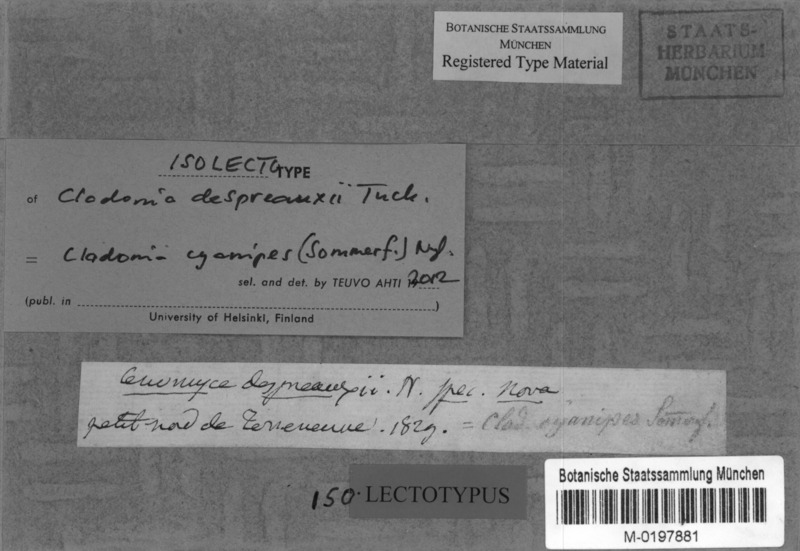 BOTANISCHE STAATSSAMMLUNG
MÜNCHEN
Registered Type Material
STAATS-
HERBARIUM
MÜNCHEN
ISOLECTOTYPE
of Cladonia despreauxii Tuck.
= Cladonia cyanipes (Sommerf.) Nyl.
sel. and det. by TEUVO AHTI 2012
(publ. in )
University of Helsinki, Finland
Cenomyce despreauxii. N. spec. Nova
petit nord de Terreneuve. 1829. = Clad. cyanipes
ISO-LECTOTYPUS
Botanische Staatssammlung München
M-0197881